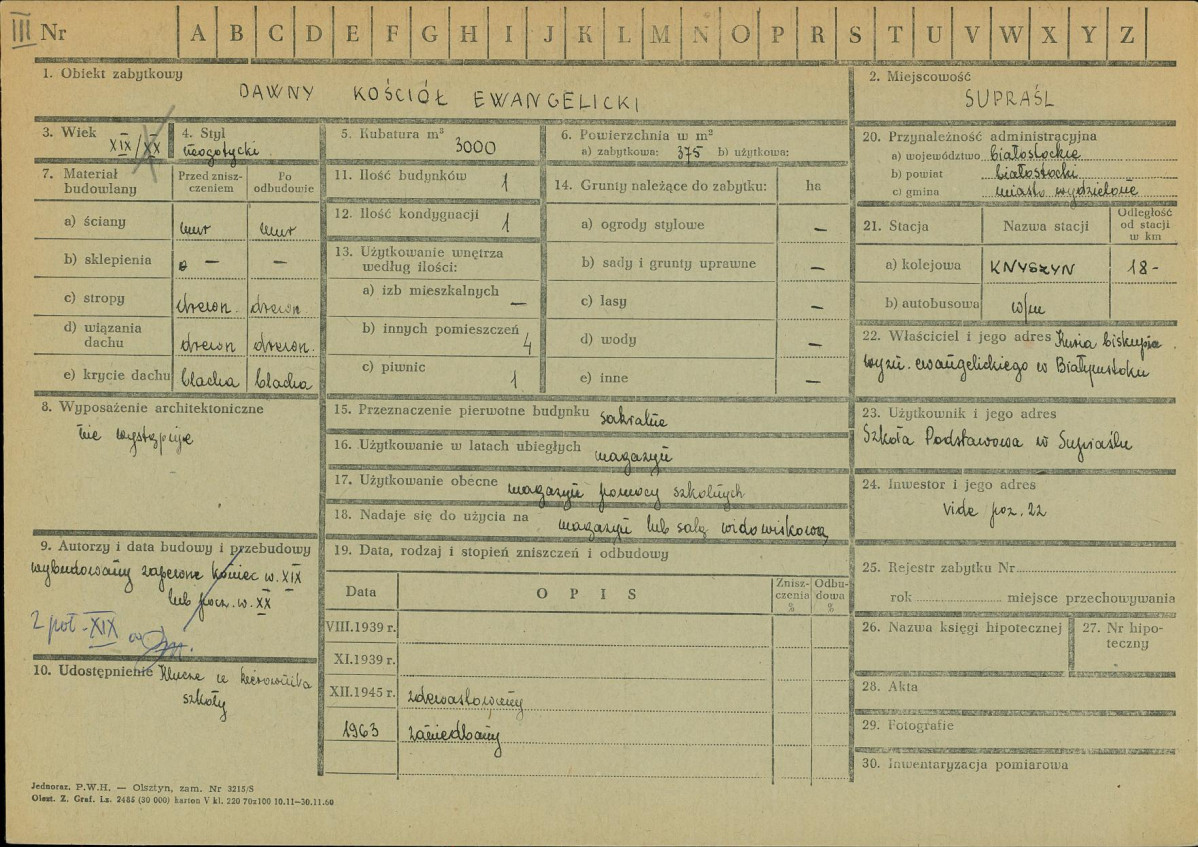 III Nr A B C D E F G H I J K L M N O P R S T U V W X Y Z
1. Obiekt zabytkowy
DAWNY KOŚCIÓŁ EWANGELICKI
2. Miejscowość
SUPRAŚL
3. Wiek
XIX/XX
4. Styl
neogotycki
5. Kubatura m³
3000
6. Powierzchnia w m²
a) zabytkowa: 375 b) użytkowa:
7. Materiał budowlany
Przed zniszczeniem
Po odbudowie
a) ściany mur mur
b) sklepienia — —
c) stropy drewn. drewn.
d) wiązania dachu drewn drewn.
e) krycie dachu blacha blacha
8. Wyposażenie architektoniczne
nie występuje
9. Autorzy i data budowy i przebudowy
wybudowany zapewne koniec w. XIX
lub pocz. w. XX
2 poł. XIX w
10. Udostępnienie Klucze u kierownika
szkoły
11. Ilość budynków 1
12. Ilość kondygnacji 1
13. Użytkowanie wnętrza
według ilości:
a) izb mieszkalnych —
b) innych pomieszczeń 4
c) piwnic 1
14. Grunty należące do zabytku: ha
a) ogrody stylowe —
b) sady i grunty uprawne —
c) lasy —
d) wody —
e) inne —
15. Przeznaczenie pierwotne budynku sakralne
16. Użytkowanie w latach ubiegłych magazyn
17. Użytkowanie obecne magazyn pomocy szkolnych
18. Nadaje się do użycia na magazyn lub salę widowiskową
19. Data, rodzaj i stopień zniszczeń i odbudowy
Data OPIS Zniszczenia % Odbudowa %
VIII.1939 r.
XI.1939 r.
XII.1945 r. zdewastowany
1963 zaniedbany
20. Przynależność administracyjna
a) województwo białostockie
b) powiat białostocki
c) gmina miasto wydzielone
21. Stacja Nazwa stacji Odległość od stacji w km
a) kolejowa KNYSZYN 18-
b) autobusowa w/m
22. Właściciel i jego adres Kuria biskupia
wyzn. ewangelickiego w Białymstoku
23. Użytkownik i jego adres
Szkoła Podstawowa w Supraślu
24. Inwestor i jego adres
vide poz. 22
25. Rejestr zabytku Nr
rok miejsce przechowywania
26. Nazwa księgi hipotecznej
27. Nr hipoteczny
28. Akta
29. Fotografie
30. Inwentaryzacja pomiarowa
Jednoraz. P.W.H. — Olsztyn, zam. Nr 3215/S
Olszt. Z. Graf. Lz. 2485 (30 000) karton V kl. 220 70x100 10.11—30.11.60